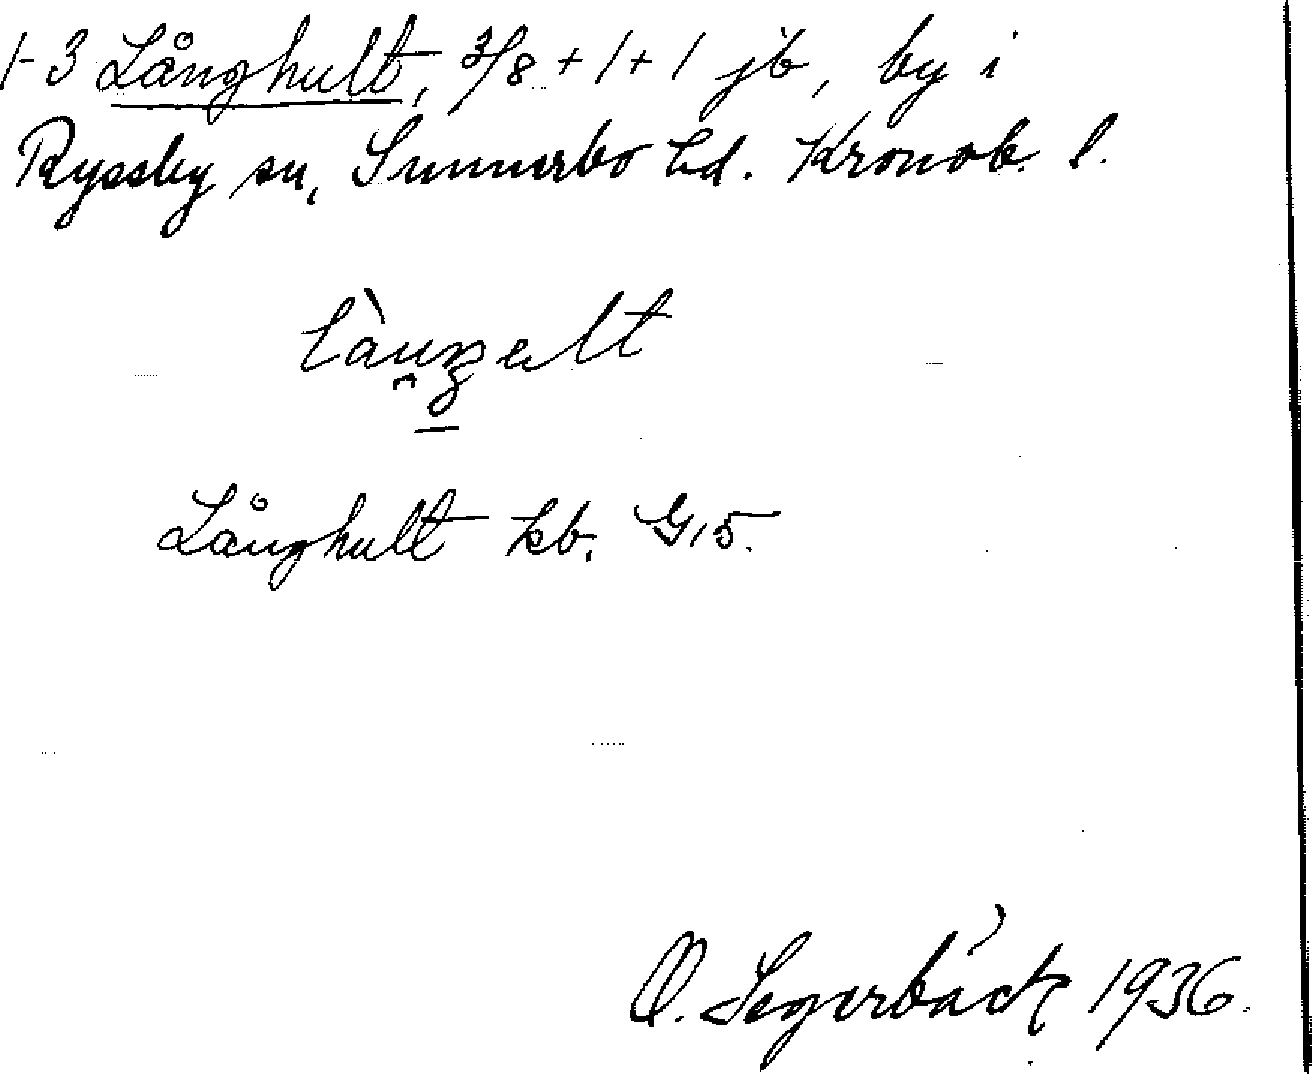 1-3 Långhult, 3/8 + 1 + 1 jb, by i
Ryssby sn, Sunnerbo hd. Kronob. l.
Långhult kb. G.15.
O. Segerbäck 1936.